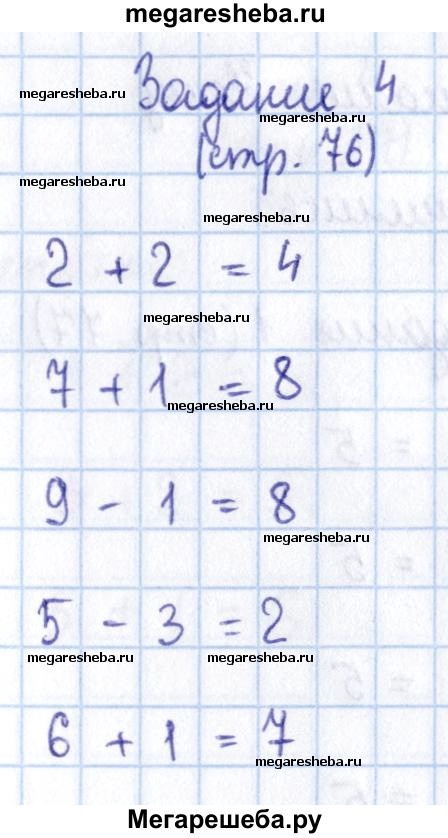 megaresheba.ru
Задание 4
megaresheba.ru
megaresheba.ru
(стр. 76)
megaresheba.ru
megaresheba.ru
2 + 2 = 4
megaresheba.ru
7 + 1 = 8
megaresheba.ru
9 - 1 = 8
megaresheba.ru
5 - 3 = 2
megaresheba.ru megaresheba.ru
6 + 1 = 7
megaresheba.ru
Мегарешеба.ру